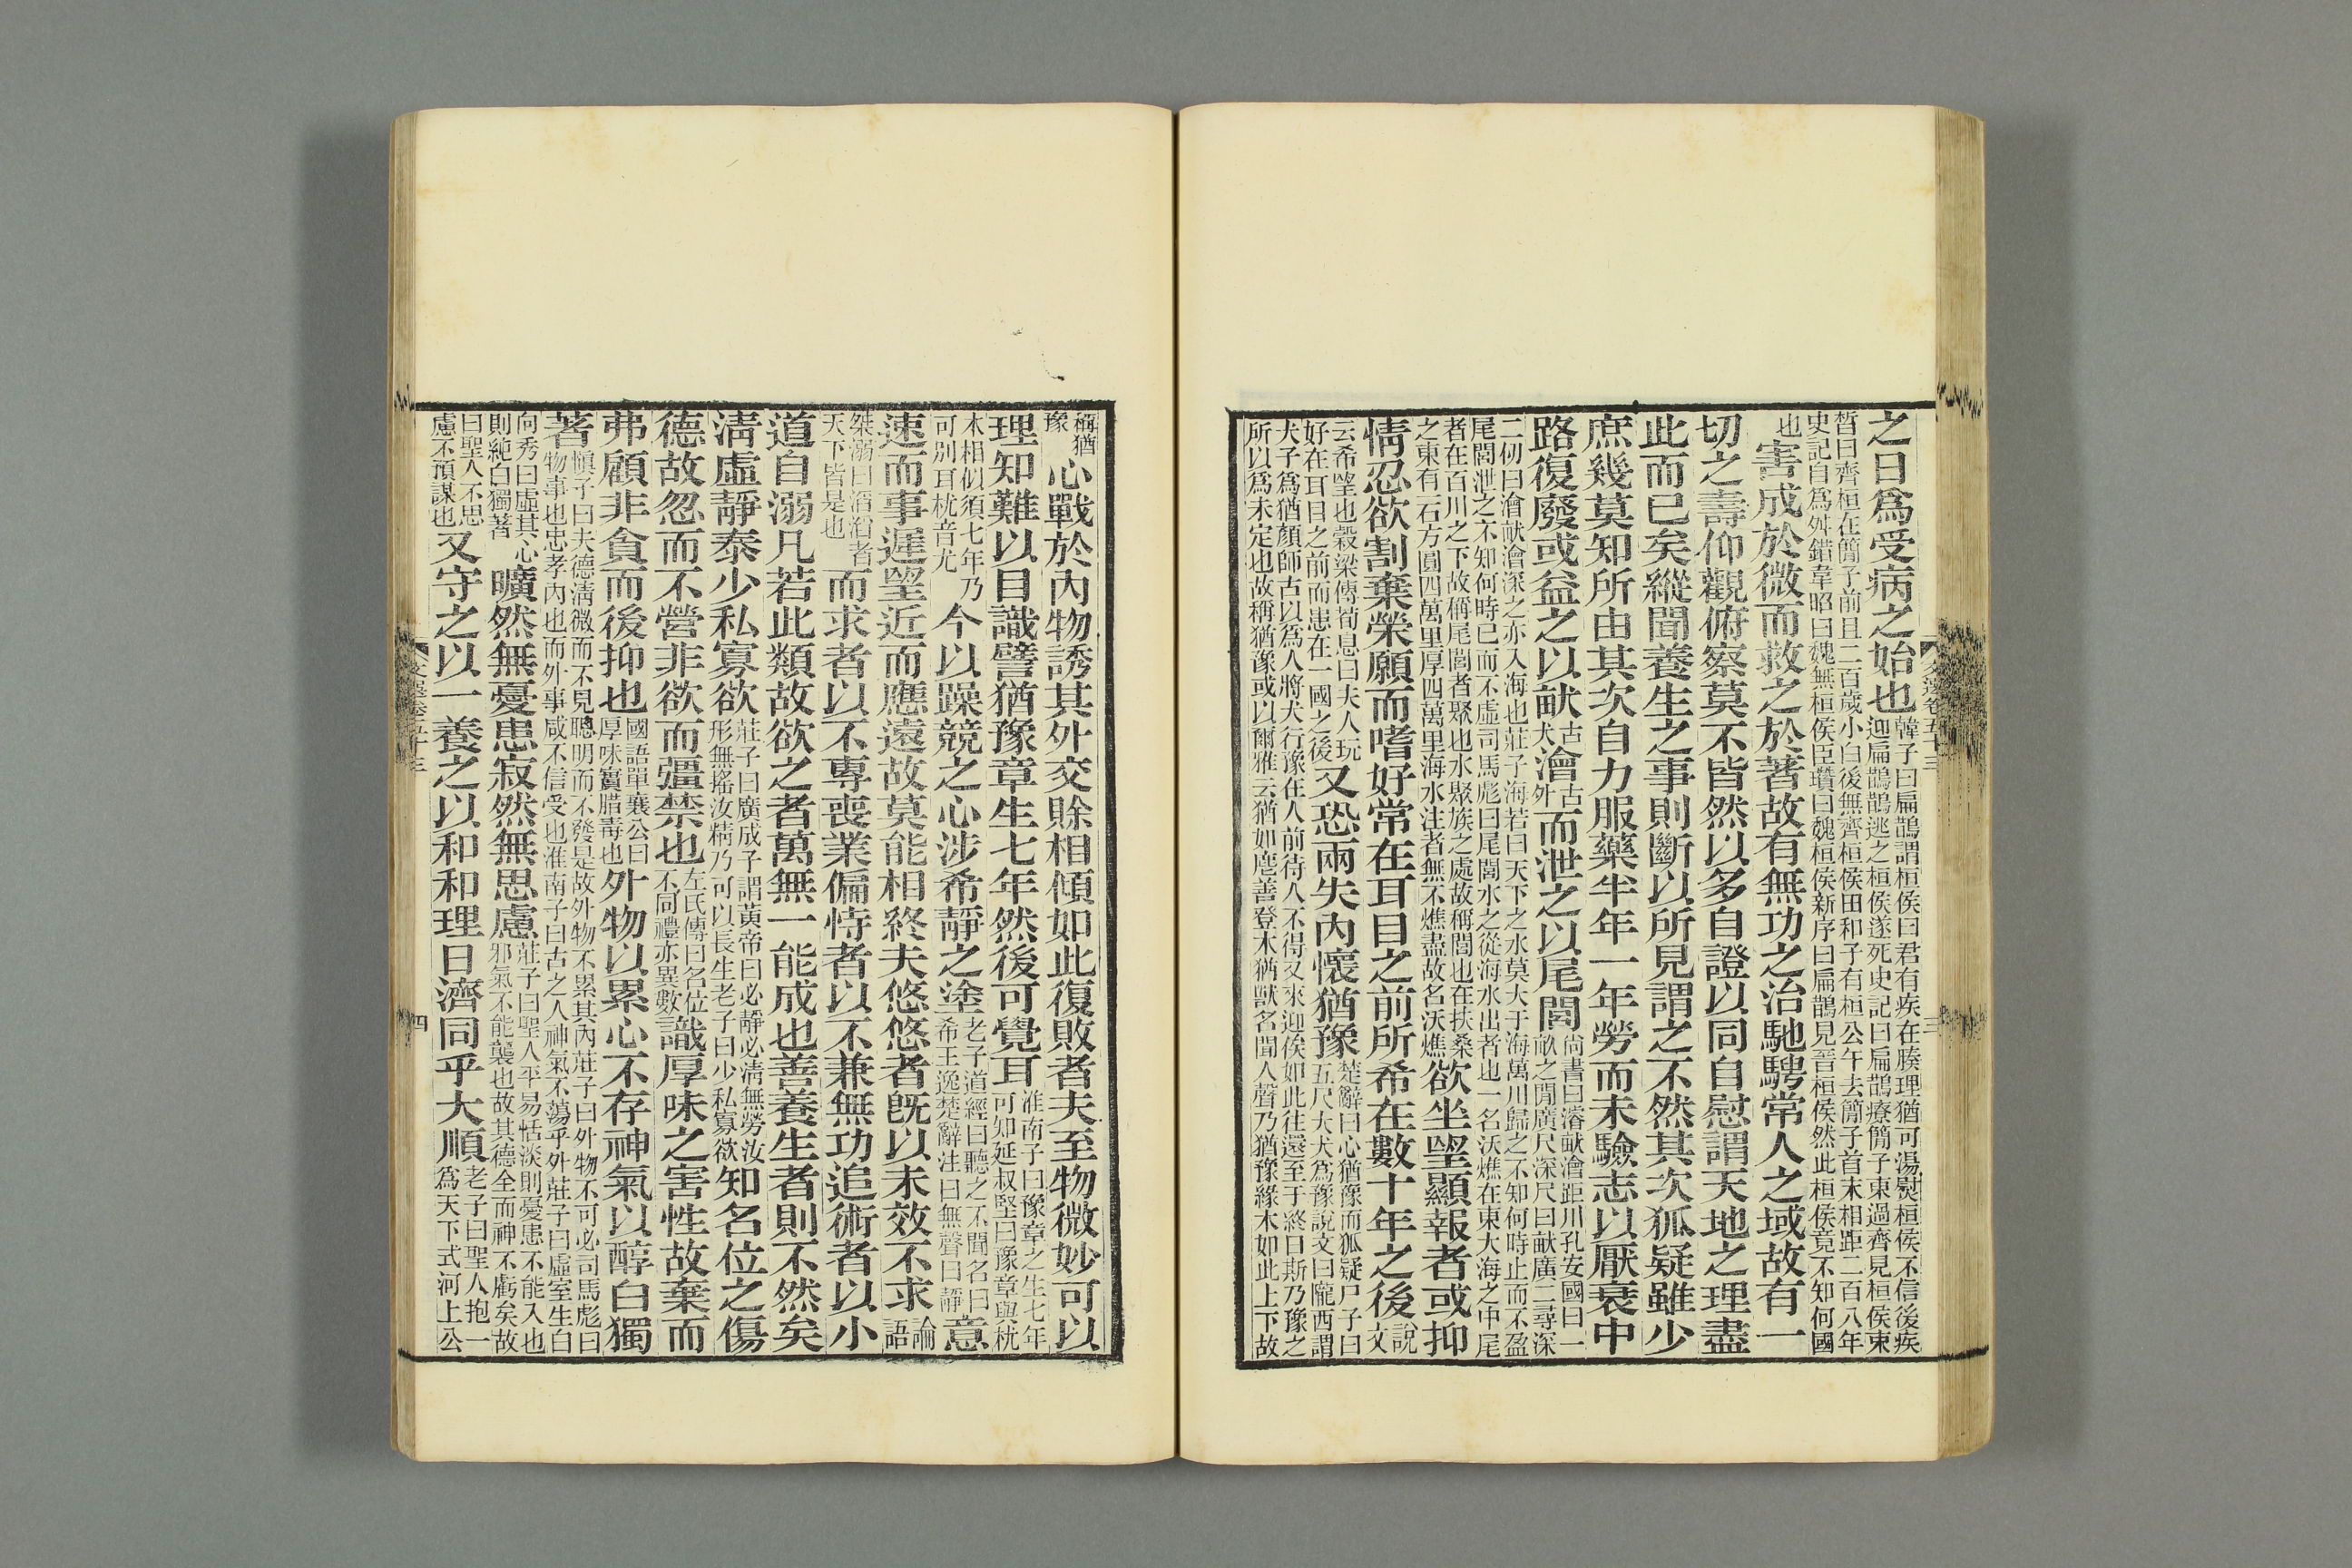 之日爲受病之始也韓子曰扁鵲謂桓侯曰君有疾在腠理猶可湯熨桓侯不信後疾迎扁鵲鵲逃之桓侯遂死史記曰扁鵲療簡子東過齊見桓侯束
晳曰齊桓在簡子前且二百歲小白後無齊桓侯田和子有桓公午去簡子首末相距二百八年史記自爲舛錯韋昭曰魏無桓侯臣瓚曰魏桓侯新序曰扁鵲見晉桓侯然此桓侯竟不知何國
也害成於微而救之於著故有無功之治馳騁常人之域故有一
切之壽仰觀俯察莫不皆然以多自證以同自慰謂天地之理盡
此而已矣縱聞養生之事則斷以所見謂之不然其次狐疑雖少
庶幾莫知所由其次自力服藥半年一年勞而未驗志以厭衰中
路復廢或益之以畎古犬澮古外而泄之以尾閭尚書曰濬畎澮距川孔安國曰一畝之閒廣尺深尺曰畎廣二尋深
二仞曰澮畎澮深之亦入海也莊子海若曰天下之水莫大于海萬川歸之不知何時止而不盈尾閭泄之不知何時已而不虛司馬彪曰尾閭水之從海水出者也一名沃燋在東大海之中尾
者在百川之下故稱尾閭者聚也水聚族之處故稱閭也在扶桑之東有石方圓四萬里厚四萬里海水注者無不燋盡故名沃燋欲坐望顯報者或抑
情忍欲割棄榮願而嗜好常在耳目之前所希在數十年之後說文
云希望也穀梁傳荀息曰夫人玩好在耳目之前而患在一國之後又恐兩失內懷猶豫楚辭曰心猶豫而狐疑尸子曰五尺大犬爲豫說文曰隴西謂
犬子爲猶顏師古以爲人將犬行豫在人前待人不得又來迎候如此往還至于終日斯乃豫之所以爲未定也故稱猶豫或以爾雅云猶如麂善登木猶獸名聞人聲乃猶豫緣木如此上下故
稱猶豫心戰於內物誘其外交賒相傾如此復敗者夫至物微妙可以
理知難以目識譬猶豫章生七年然後可覺耳淮南子曰豫章之生七年可知延叔堅曰豫章與枕
木相似須七年乃可別耳枕音尤今以躁競之心涉希靜之塗老子道經曰聽之不聞名曰希王逸楚辭注曰無聲曰靜意
速而事遲望近而應遠故莫能相終夫悠悠者旣以未效不求論語
桀溺曰滔滔者天下皆是也而求者以不專喪業偏恃者以不兼無功追術者以小
道自溺凡若此類故欲之者萬無一能成也善養生者則不然矣
淸虛靜泰少私寡欲莊子曰廣成子謂黃帝曰必靜必淸無勞汝形無搖汝精乃可以長生老子曰少私寡欲知名位之傷
德故忽而不營非欲而彊禁也左氏傳曰名位不同禮亦異數識厚味之害性故棄而
弗顧非貪而後抑也國語單襄公曰厚味實腊毒也外物以累心不存神氣以醇白獨
著愼子曰夫德淸微而不見聰明而不發是故外物不累其內莊子曰外物不可必司馬彪曰物事也忠孝內也而外事咸不信受也淮南子曰古之人神氣不蕩乎外莊子曰虛室生白
向秀曰虛其心則純白獨著曠然無憂患寂然無思慮莊子曰聖人平易恬淡則憂患不能入也邪氣不能襲也故其德全而神不虧矣故
曰聖人不思慮不預謀也又守之以一養之以和和理日濟同乎大順老子曰聖人抱一爲天下式河上公
文選卷五十三
三
四